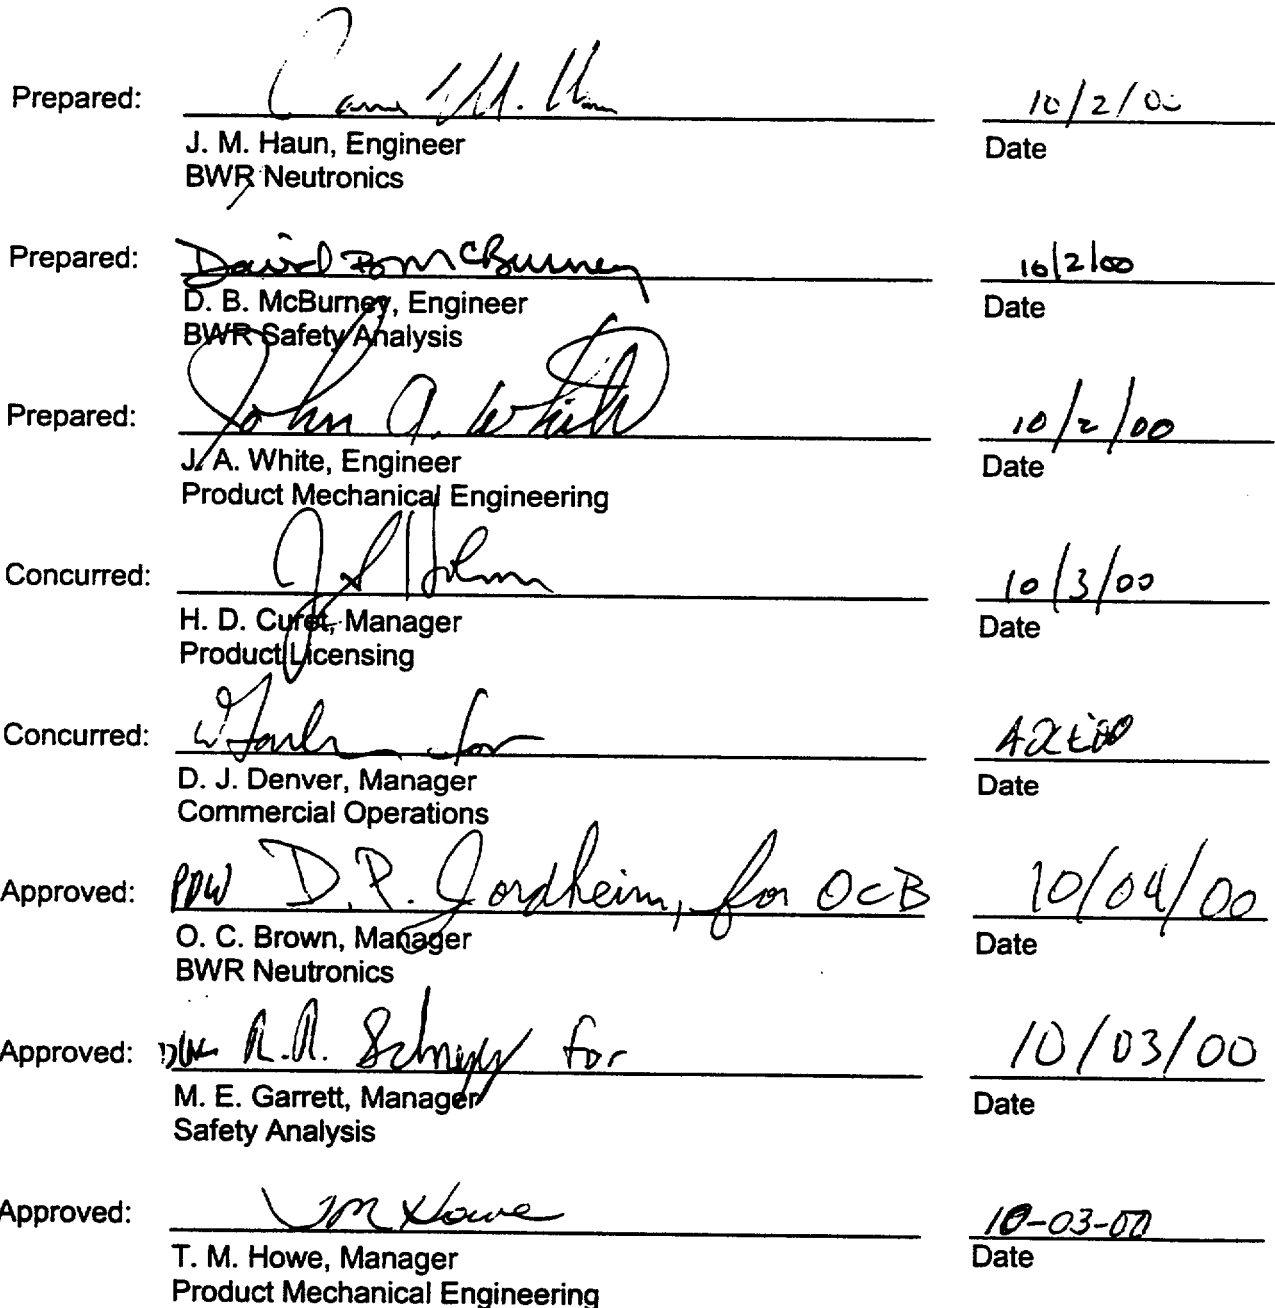 Prepared: M. 10/2/00
J. M. Haun, Engineer Date
BWR Neutronics
Prepared: David B McBurney 10/2/00
D. B. McBurney, Engineer Date
BWR Safety Analysis
Prepared: John A. White 10/2/00
J. A. White, Engineer Date
Product Mechanical Engineering
Concurred: 10/3/00
H. D. Curet, Manager Date
Product Licensing
Concurred: for
D. J. Denver, Manager Date
Commercial Operations
Approved: PDW D. P. Jordheim, for OCB 10/04/00
O. C. Brown, Manager Date
BWR Neutronics
Approved: R. R. Schnepp for 10/03/00
M. E. Garrett, Manager Date
Safety Analysis
Approved: TM Howe 10-03-00
T. M. Howe, Manager Date
Product Mechanical Engineering